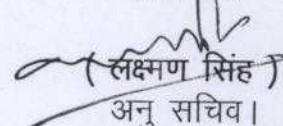 ( लक्ष्मण सिंह )
अनु सचिव।